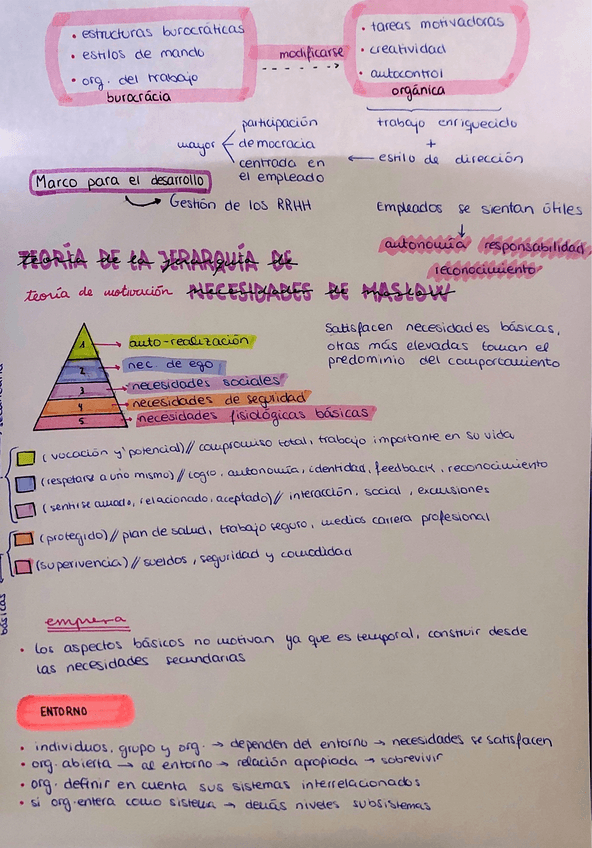 • estructuras burocráticas
• estilos de mando
• org. del trabajo
burocrácia
modificarse
• tareas motivadoras
• creatividad
• autocontrol
orgánica
trabajo enriquecido
+
estilo de dirección
mayor
participación
democracia
centrada en
el empleado
Marco para el desarrollo
Gestión de los RRHH
Empleados se sientan útiles
autonomía responsabilidad
reconocimiento
TEORÍA DE LA JERARQUÍA DE
teoría de motivación NECESIDADES DE MASLOW
1 auto-realización
2 nec. de ego
3 necesidades sociales
4 necesidades de seguridad
5 necesidades fisiológicas básicas
Satisfacen necesidades básicas,
otras más elevadas toman el
predominio del comportamiento
(vocación y potencial) // compromiso total, trabajo importante en su vida
(respetarse a uno mismo) // logro, autonomía, identidad, feedback, reconocimiento
(sentirse amado, relacionado, aceptado) // interacción, social, excursiones
(protegido) // plan de salud, trabajo seguro, medios carrera profesional
(superivencia) // sueldos, seguridad y comodidad
básicas
empresa
• los aspectos básicos no motivan ya que es temporal, construir desde
las necesidades secundarias
ENTORNO
• individuos, grupo y org. → dependen del entorno → necesidades se satisfacen
• org. abierta → al entorno → relación apropiada → sobrevivir
• org. definir en cuenta sus sistemas interrelacionados
• si org. entera como sistema → demás niveles subsistemas